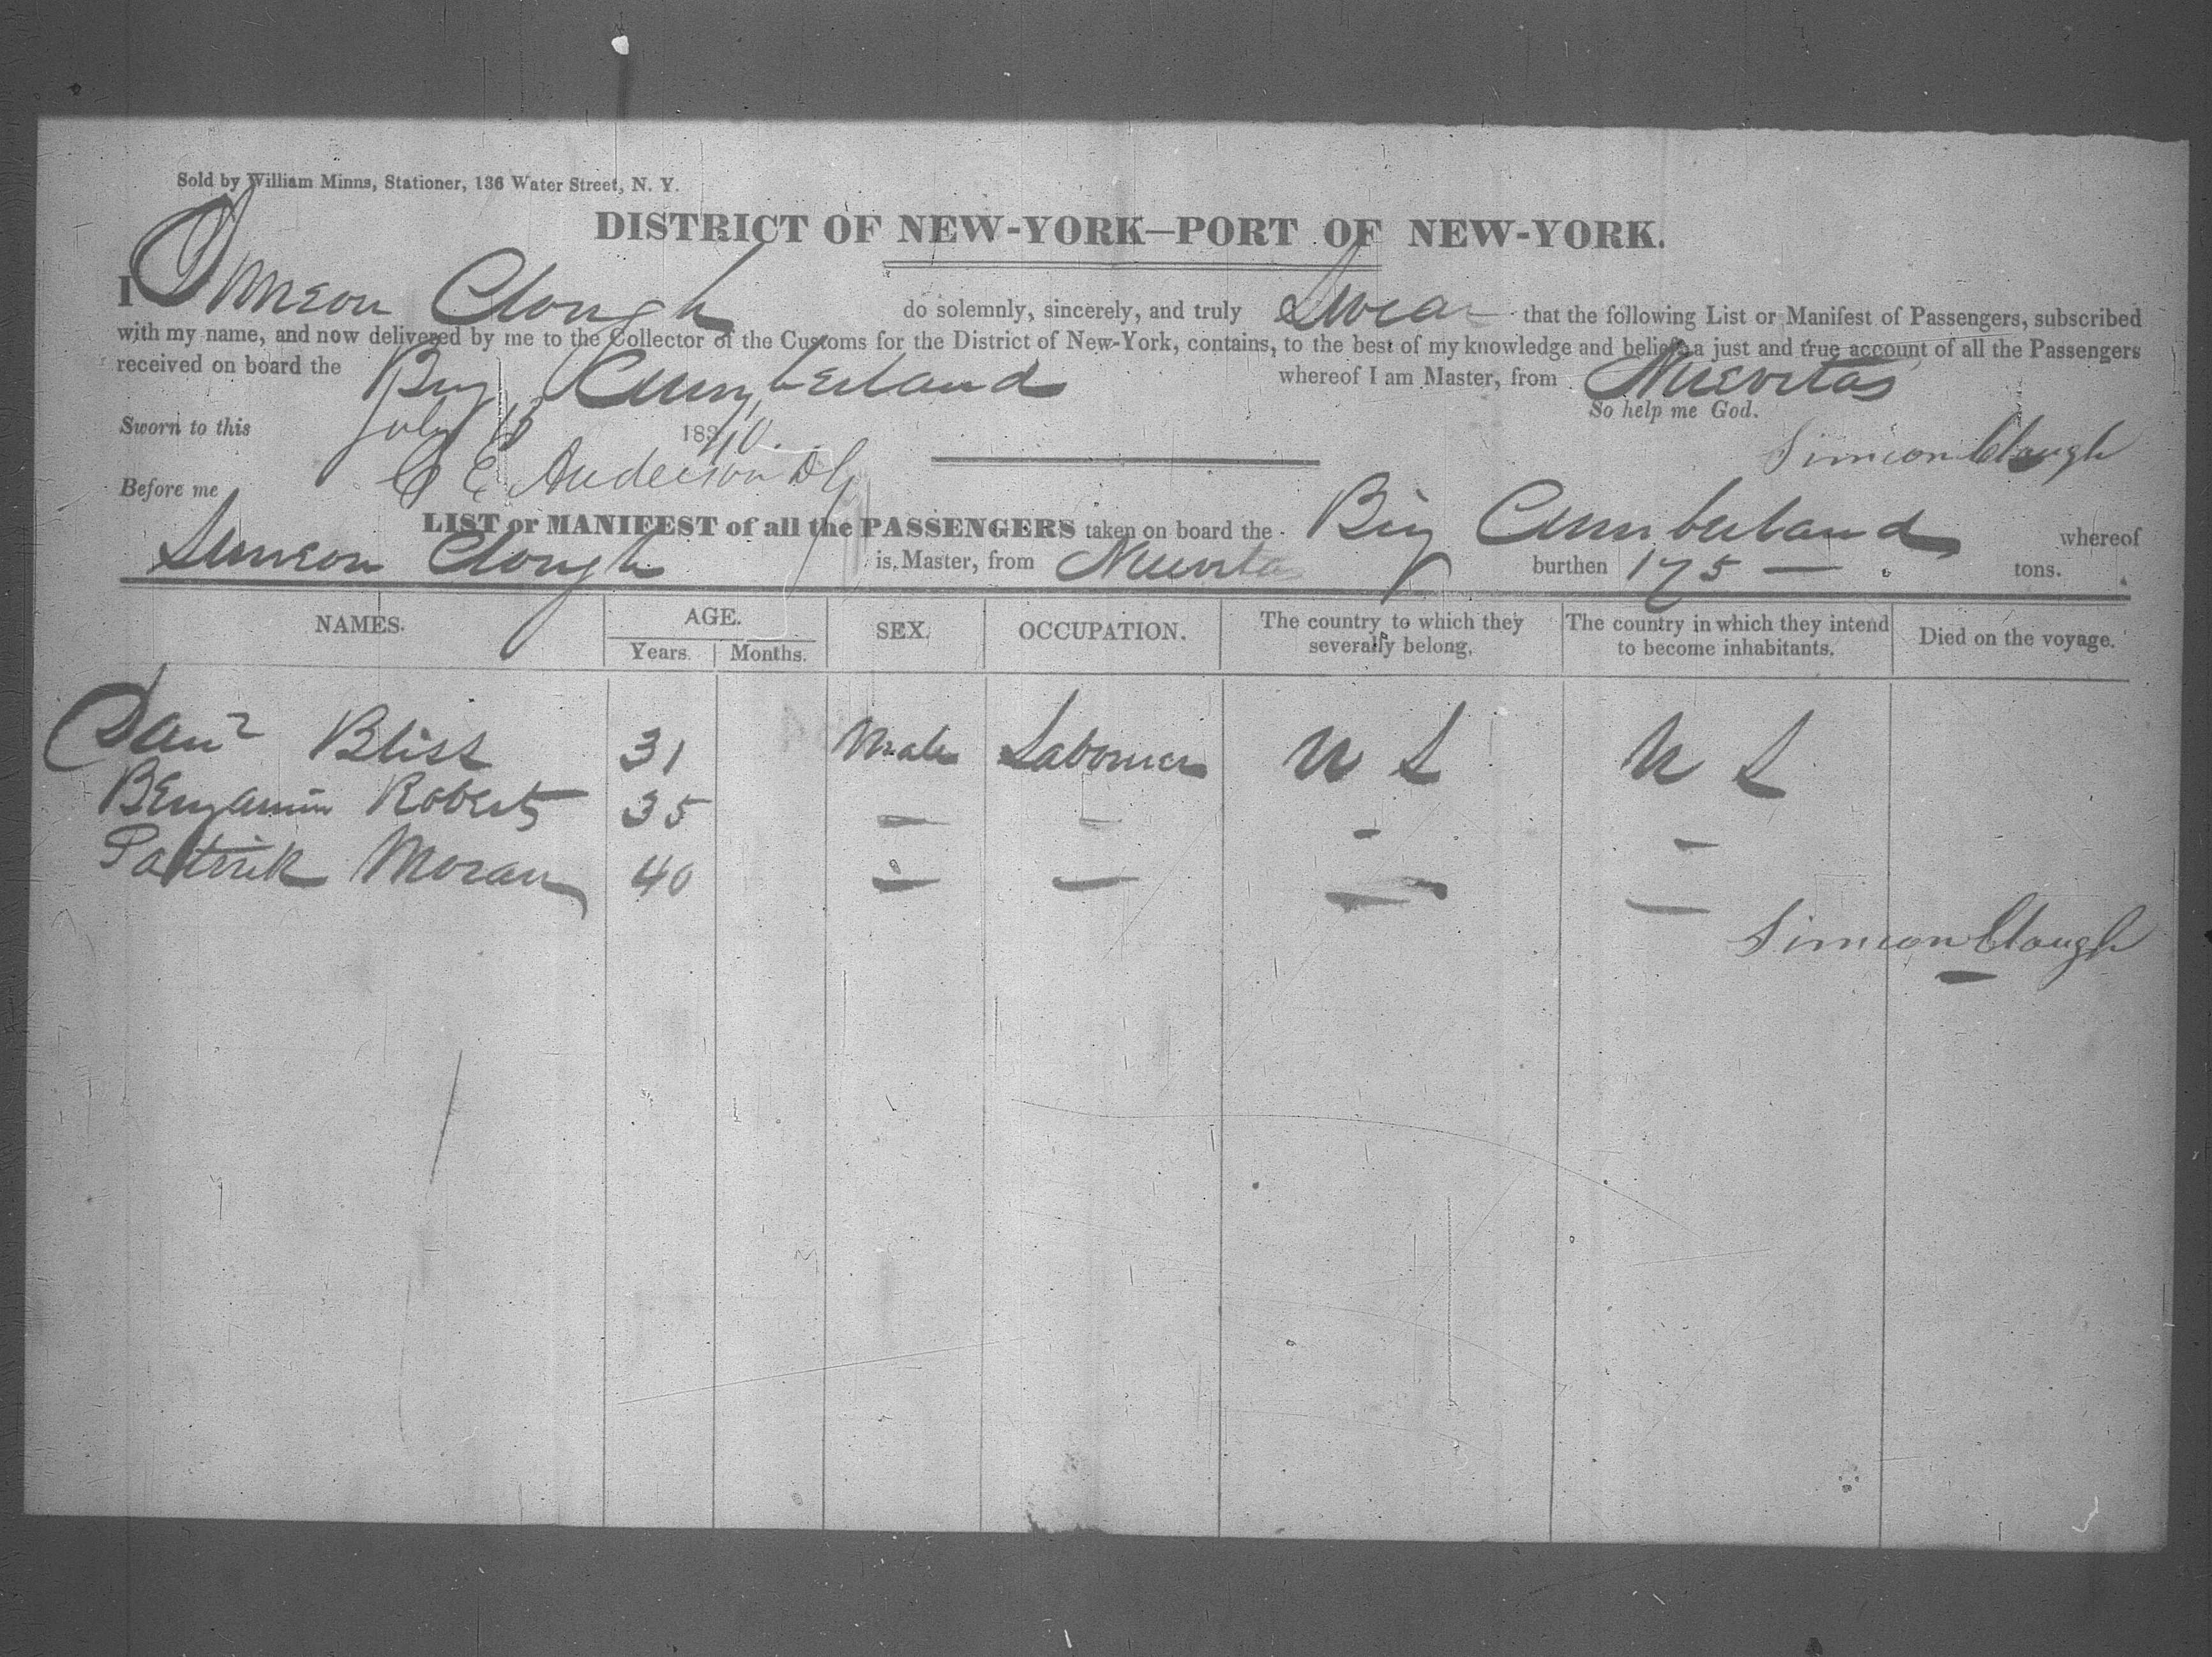 Sold by William Minns, Stationer, 136 Water Street, N. Y.
DISTRICT OF NEW-YORK—PORT OF NEW-YORK.
I Simeon Clough do solemnly, sincerely, and truly Swear that the following List or Manifest of Passengers, subscribed
with my name, and now delivered by me to the Collector of the Customs for the District of New-York, contains, to the best of my knowledge and belief, a just and true account of all the Passengers
received on board the Brig Cumberland whereof I am Master, from Nuevitas
So help me God.
Sworn to this July 1840.
Simeon Clough
Before me C E Anderson
LIST or MANIFEST of all the PASSENGERS taken on board the Brig Cumberland whereof
Simeon Clough is Master, from Nuevitas burthen 175 — tons.
NAMES. AGE. SEX. OCCUPATION. The country to which they severally belong. The country in which they intend to become inhabitants. Died on the voyage.
Years. Months.
Danl Bliss 31 Male Labourer U S U S
Benjamin Roberts 35 — — — —
Patrick Moran 40 — — — —
Simeon Clough